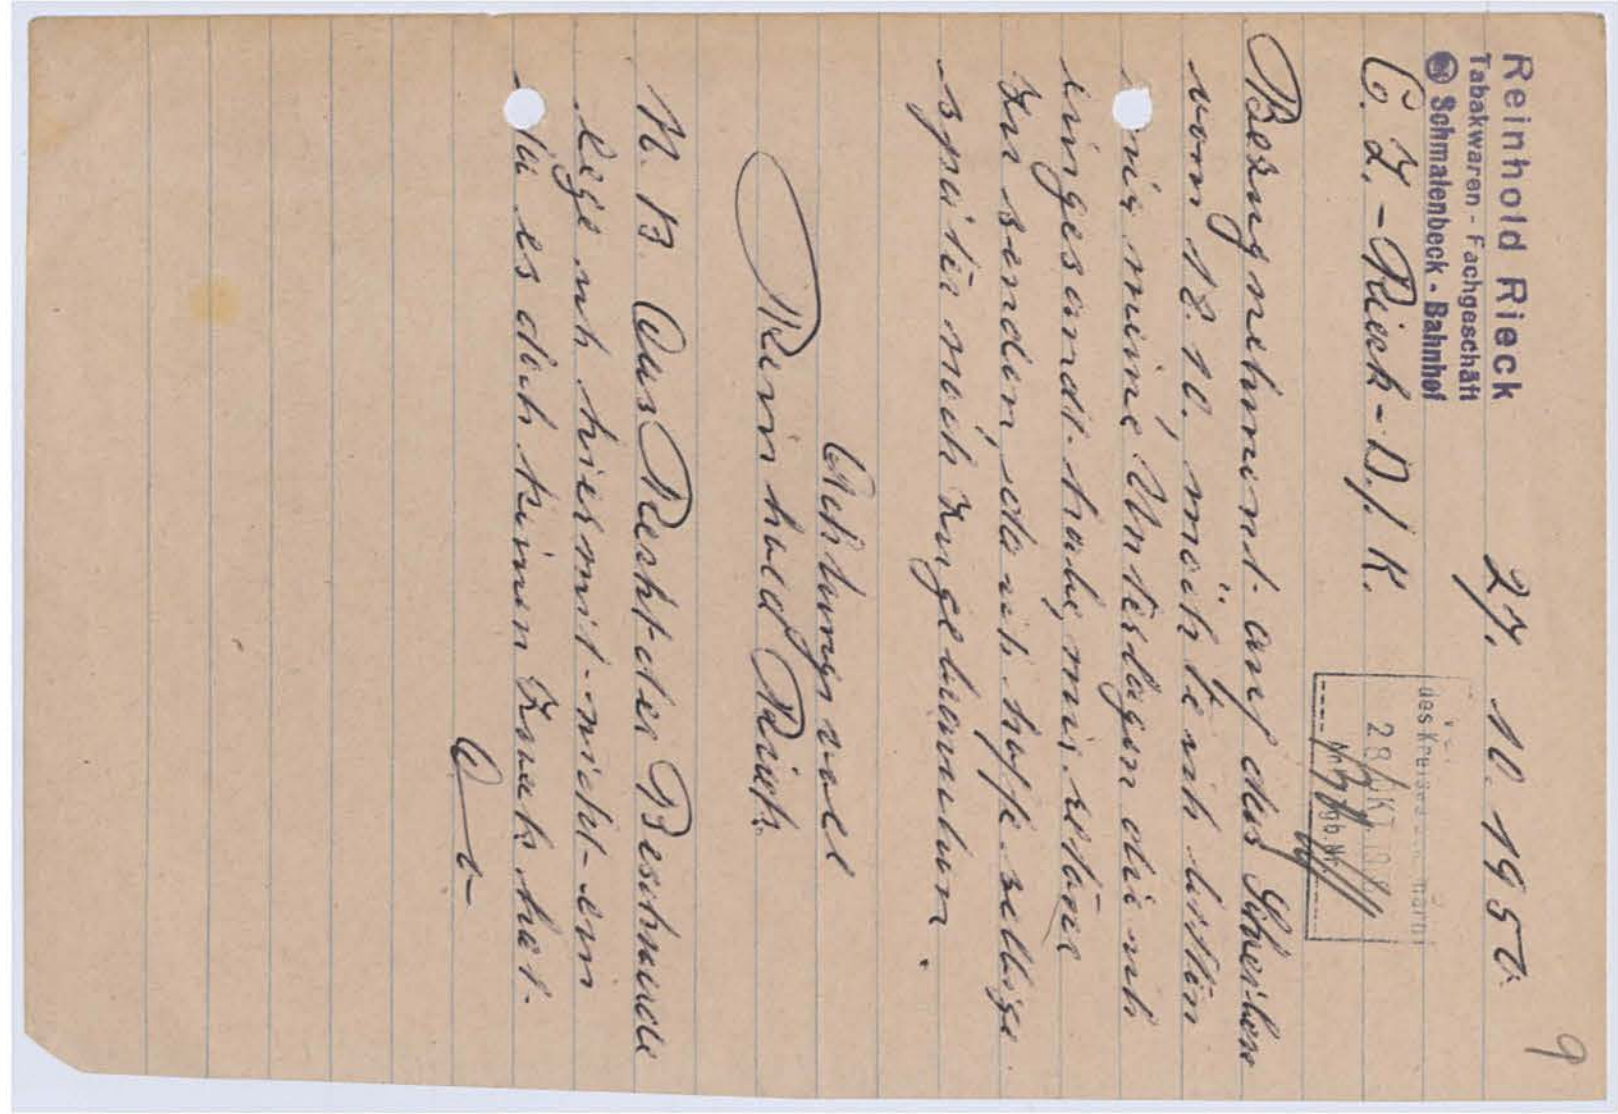 9
Reinhold Rieck
Tabakwaren - Fachgeschäft
Schmalenbeck - Bahnhof
27. 10. 1950.
des Kreises
28. OKT. 195
C. Z. - Rieck - D./K.
Bezugnehmend auf das Schreiben
vom 18. 10., möchte ich bitten
mir meine Unterlagen die ich
eingesandt habe, mir retour
zu senden, da ich hoffe selbige
später noch zu gebrauchen.
Achtungsvoll
Reinhold Rieck.
N. B. Das Recht der Beschwerde
lege ich hiermit nicht ein
da es doch keinen Zweck hat.